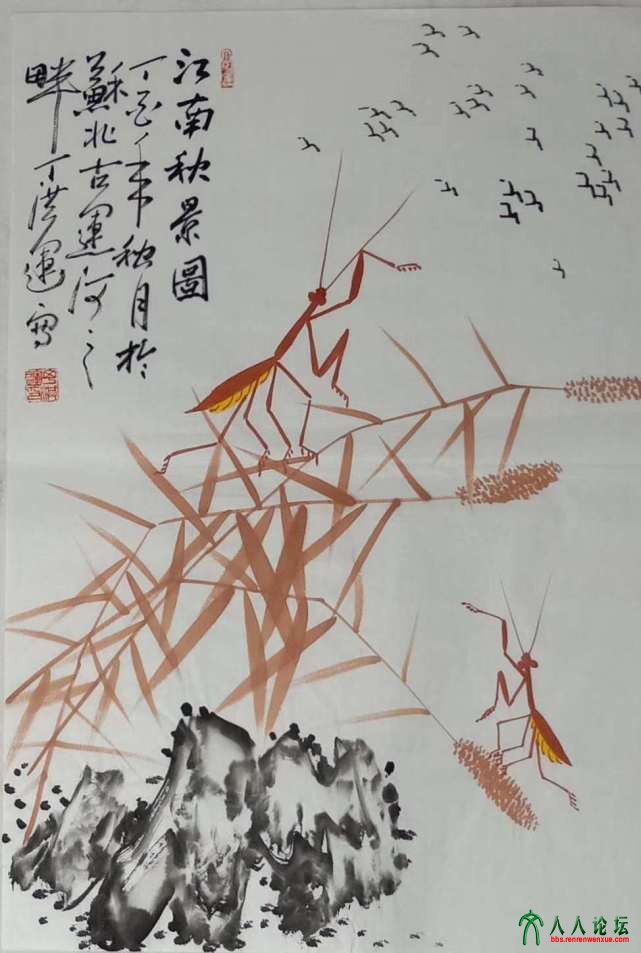 江南秋景图
丁酉年秋月於
苏北古运河之
畔丁洪运写
人人论坛
bbs.renrenwenxue.com